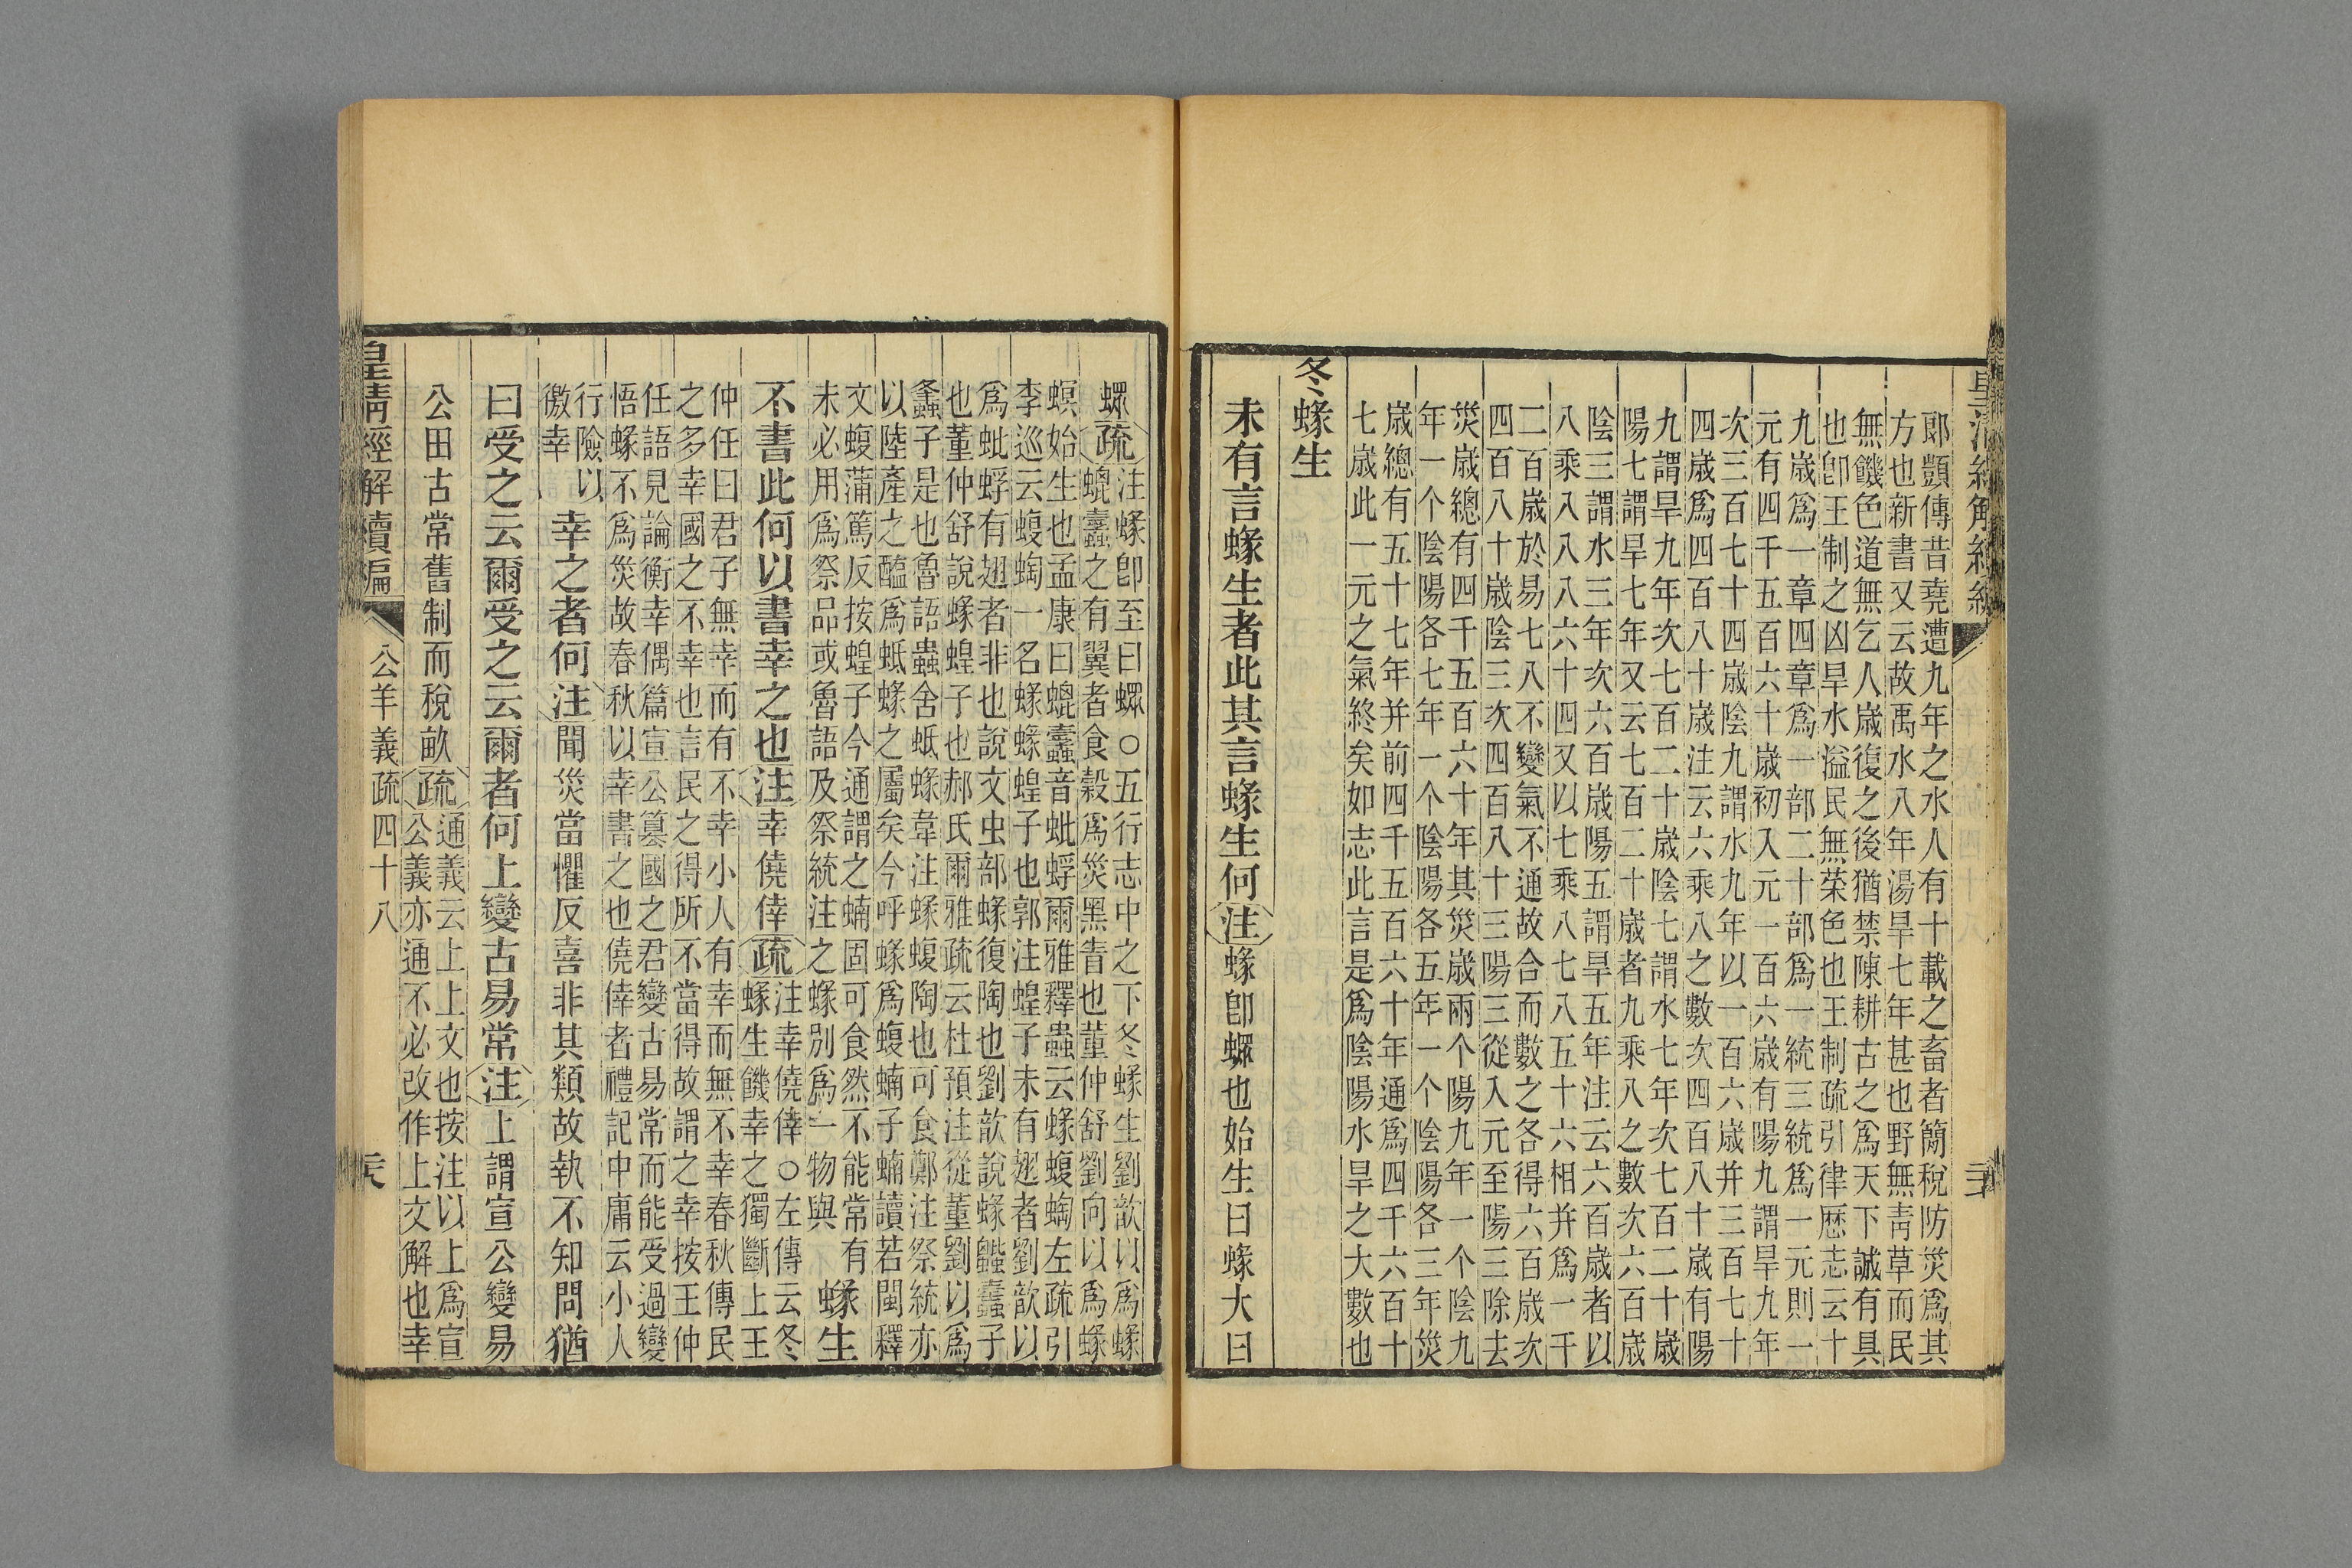 郎顗傳昔堯遭九年之水人有十載之畜者簡稅防災爲其
方也新書又云故禹水八年湯旱七年甚也野無靑草而民
無饑色道無乞人歲復之後猶禁陳耕古之爲天下誠有具
也卽王制之凶旱水溢民無菜色也王制疏引律厯志云十
九歲爲一章四章爲一部二十部爲一統三統爲一元則一
元有四千五百六十歲初入元一百六歲有陽九謂旱九年
次三百七十四歲陰九謂水九年以一百六歲并三百七十
四歲爲四百八十歲注云六乘八之數次四百八十歲有陽
九謂旱九年次七百二十歲陰七謂水七年次七百二十歲
陽七謂旱七年又云七百二十歲者九乘八之數次六百歲
陰三謂水三年次六百歲陽五謂旱五年注云六百歲者以
八乘八八八六十四又以七乘八七八五十六相并爲一千
二百歲於易七八不變氣不通故合而數之各得六百歲次
四百八十歲陰三次四百八十三陽三從入元至陽三除去
災歲總有四千五百六十年其災歲兩个陽九年一个陰九
年一个陰陽各七年一个陰陽各五年一个陰陽各三年災
歲總有五十七年并前四千五百六十年通爲四千六百十
七歲此一元之氣終矣如志此言是爲陰陽水旱之大數也
冬蝝生
未有言蝝生者此其言蝝生何注蝝卽蠌也始生曰蝝大曰
蠌疏注蝝卽至曰蠌○五行志中之下冬蝝生劉歆以爲蝝
螕蠹之有翼者食穀爲災黑眚也董仲舒劉向以爲蝝
螟始生也孟康曰螕蠹音蚍蜉爾雅釋蟲云蝝蝮蜪左疏引
李巡云蝮蜪一名蝝蝝蝗子也郭注蝗子未有翅者劉歆以
爲蚍蜉有翅者非也說文虫部蝝復陶也劉歆說蝝蚍蠹子
也董仲舒說蝝蝗子也郝氏爾雅疏云杜預注從董劉以爲
螽子是也魯語蟲舍蚳蝝韋注蝝蝮陶也可食鄭注祭統亦
以陸產之醢爲蚳蝝之屬矣今呼蝝爲蝮蝻子蝻讀若閩釋
文蝮蒲篤反按蝗子今通謂之蝻固可食然不能常有
未必用爲祭品或魯語及祭統注之蝝別爲一物與蝝生
不書此何以書幸之也注幸僥倖疏注幸僥倖○左傳云冬
蝝生饑幸之獨斷上王
仲任曰君子無幸而有不幸小人有幸而無不幸春秋傳民
之多幸國之不幸也言民之得所不當得故謂之幸按王仲
任語見論衡幸偶篇宣公簒國之君變古易常而能受過變
悟蝝不爲災故春秋以幸書之也僥倖者禮記中庸云小人
行險以
徼幸幸之者何注聞災當懼反喜非其類故執不知問猶
曰受之云爾受之云爾者何上變古易常注上謂宣公變易
公田古常舊制而稅畝疏通義云上上文也按注以上爲宣
公義亦通不必改作上文解也幸
皇淸經解續編
公羊義疏四十八